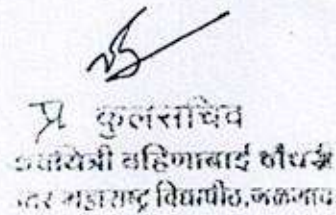 प्र कुलसचिव
कवयित्री बहिणाबाई चौधरी
उत्तर महाराष्ट्र विद्यापीठ,जळगाव